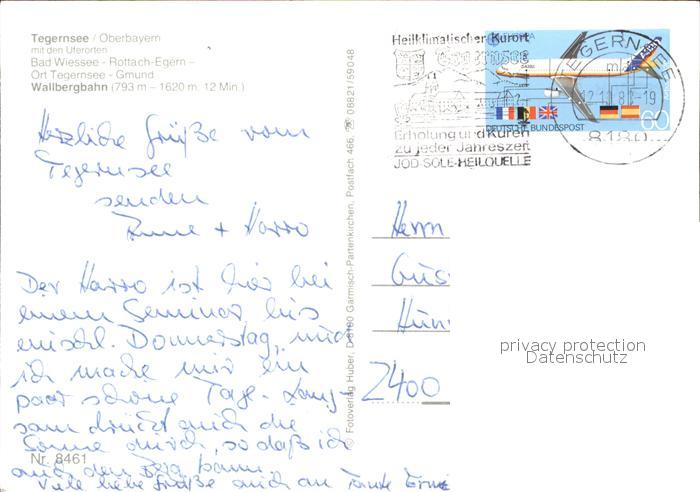 Tegernsee / Oberbayern
mit den Uferorten
Bad Wiessee - Rottach-Egern -
Ort Tegernsee - Gmund
Wallbergbahn (793 m – 1620 m, 12 Min.)
Heilklimatischer Kurort
Tegernsee
Erholung und Kuren
zu jeder Jahreszeit
JOD-SOLE-HEILQUELLE
DEUTSCHE BUNDESPOST
60
TEGERNSEE
8180
Herzliche Grüße vom
Tegernsee
senden
+ Harro
Der Harro ist hier bei
einem Seminar bis
einschl. Donnerstag, und
ich mache mir ein
paar schöne Tage. Lang-
sam drückt auch die
Sonne durch, so daß ich
auf den Berg kann.
Viele liebe Grüße auch an Tante Erni
Nr. 8461
© Fotoverlag Huber, D-8100 Garmisch-Partenkirchen, Postfach 466, 08821/59048
Herrn
Gus
2400
privacy protection
Datenschutz